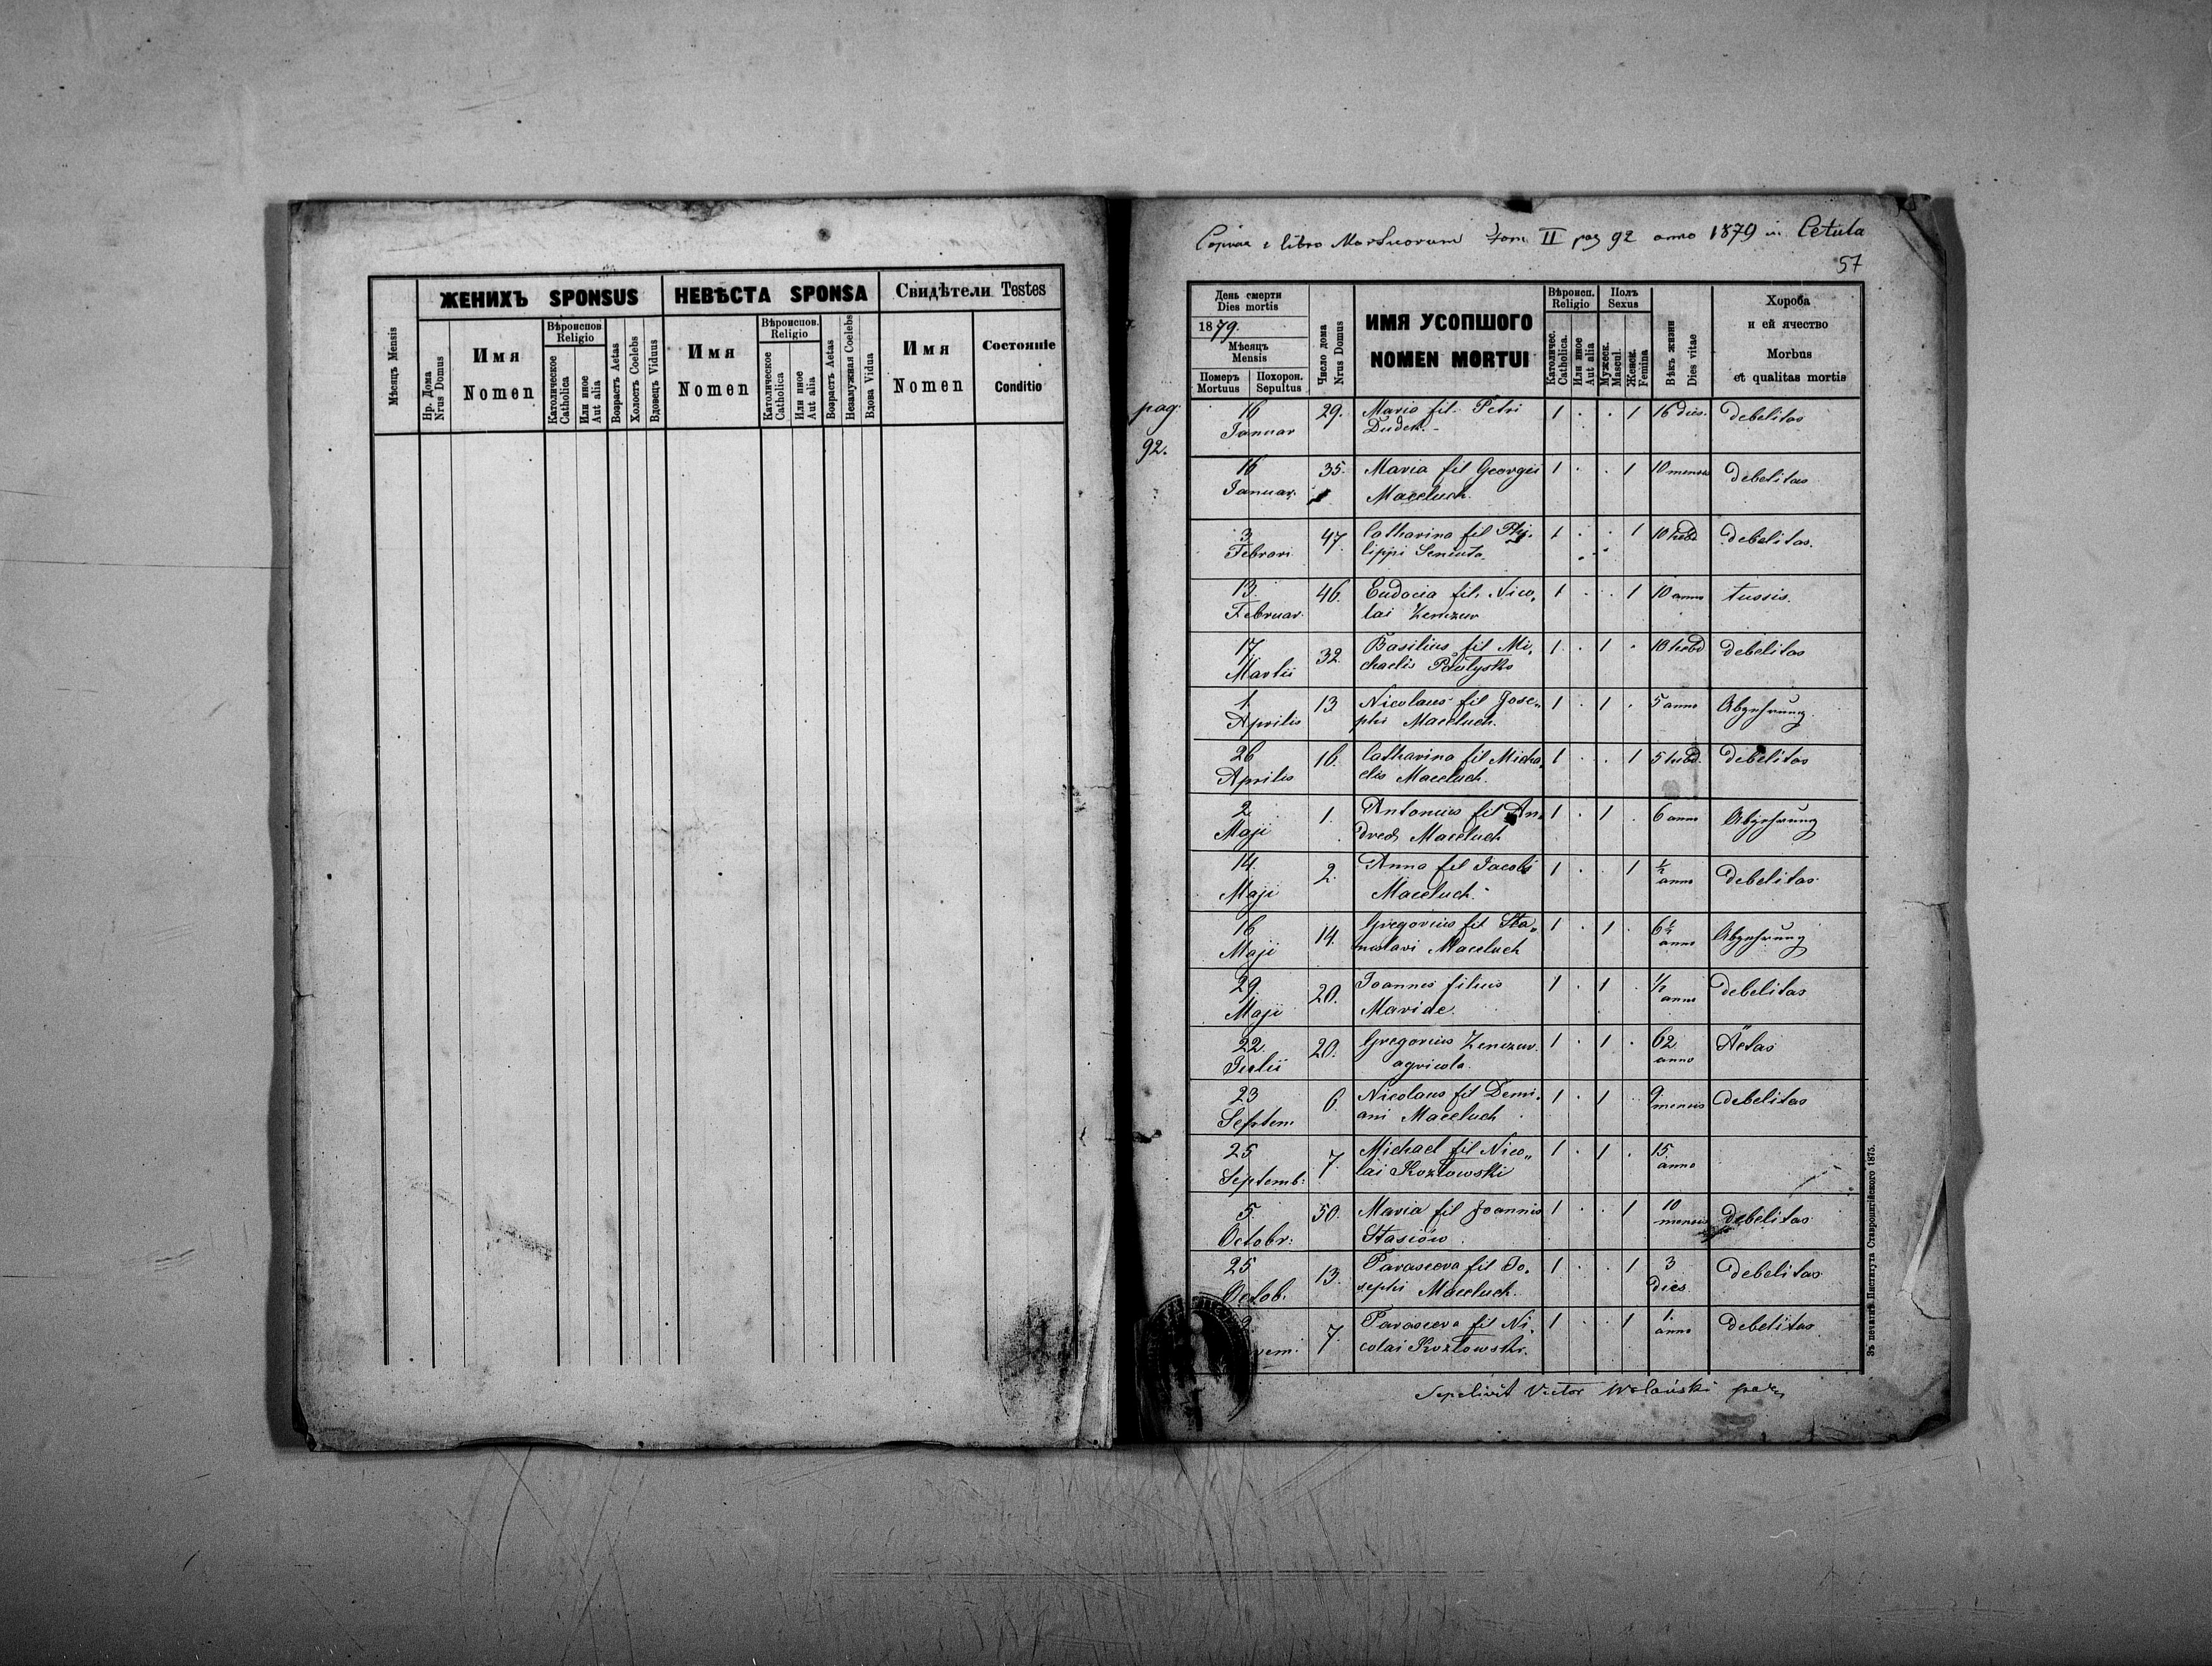 ЖЕНИХЪ SPONSUS
НЕВѢСТА SPONSA
Свидѣтели Testes
Мѣсяцъ Mensis
Нр. Дома
Nrus Domus
Имя
Nomen
Вѣроиспов.
Religio
Католическое
Catholica
Или иное
Aut alia
Возрастъ Aetas
Холостъ Coelebs
Вдовецъ Viduus
Имя
Nomen
Вѣроиспов.
Religio
Католическое
Catholica
Или иное
Aut alia
Возрастъ Aetas
Незамужная Coelebs
Вдова Vidua
Имя
Nomen
Состояніе
Conditio
Copiae e libro Mortuorum Tom II pag 92 anno 1879 in Cetula
57
День смерти
Dies mortis
1879.
Мѣсяцъ
Mensis
Померъ
Mortuus
Похорон.
Sepultus
Число дома
Nrus Domus
ИМЯ УСОПШОГО
NOMEN MORTUI
Вѣроисп.
Religio
Католичес.
Catholica.
Или иное
Aut alia
Полъ
Sexus
Мужеск.
Mascul.
Женск.
Femina
Вѣкъ жизни
Dies vitae
Хороба
и ей ячество
Morbus
et qualitas mortis
pag.
92.
16 29. Maria fil. Petri 1 . . 1 16 dies. debelitas
Januar Dudek.
16 35. Maria fil Georgii 1 . . 1 10 mensis debelitas
Januar. Maceluch.
3 47. Catharina fil Phy- 1 . . 1 10 hebd debelitas.
Februari lippi Seniuta
13. 46. Eudocia fil. Nico- 1 . . 1 10 anno tussis.
Februar. lai
17 32 Basilius fil Mi- 1 . 1 . 10 hebd debelitas
Martii chaelis
1 13 Nicolaus fil Jose- 1 . 1 . 5 anno Abzehrung.
Aprilis phi Maceluch.
26 16. Catharina fil Micha- 1 . . 1 5 hebd. debelitas
Aprilis elis Maceluch.
2 1. Antonius fil An- 1 . 1 . 6 anno Abzehrung
Maji dreae Maceluch
14. 2. Anna fil Jacobi 1 . . 1 ½ anno debelitas
Maji Maceluch.
16 14. Gregorius fil Sta- 1 . 1 . 6½ anno Abzehrung
Maji nislavi Maceluch
29. 20. Joannes filius 1 . 1 . ½ anno debelitas
Maji Mariae.
22. 20. Gregorius 1 . 1 . 62 anno Aetas
Julii agricola.
23 6. Nicolaus fil Demi- 1 . 1 9 mensis debelitas
Septem ani Maceluch
25 7. Michael fil Nico- 1 . 1 . 15 anno
Septemb: lai Kozłowski
5. 50. Maria fil Joannis 1 . . 1 10 mensis debelitas
Octobr: Stasiów
25 13. Parasceva fil Jo- 1 . . 1 3 dies debelitas
Octob. sephi Maceluch.
7. Parasceva fil Ni- 1 . . 1 1. anno debelitas
vem. colai Kozłowski.
Sepelivit Victor Wolański
Зъ печатнѣ Института Ставропигійского 1875.